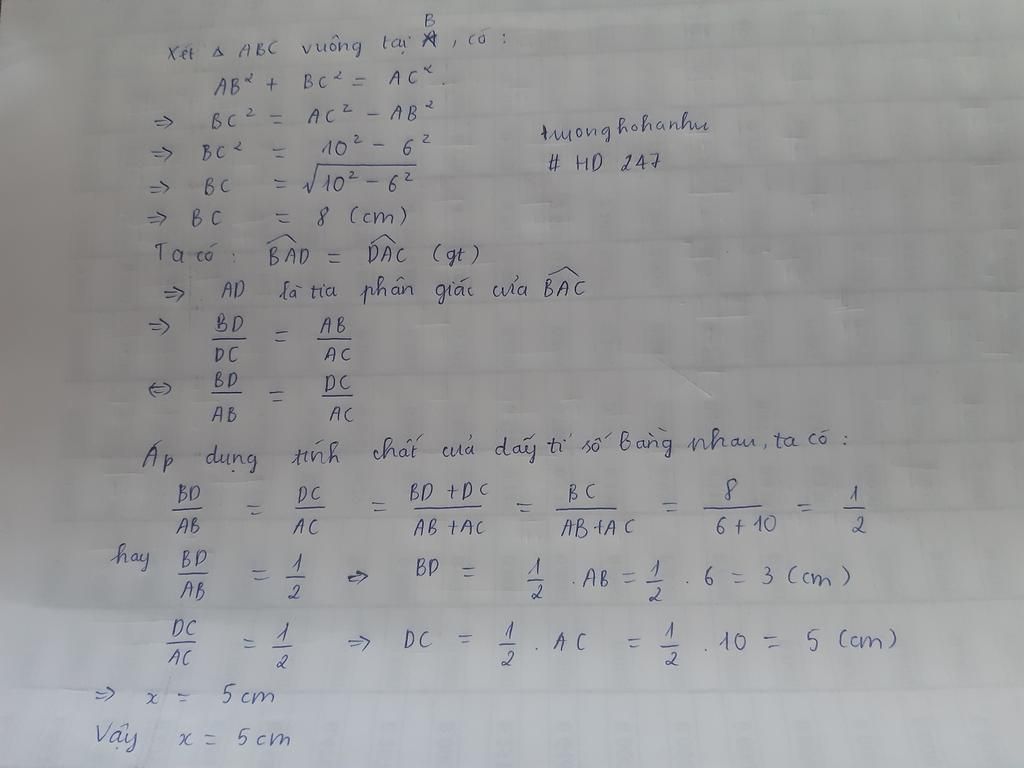 Xét Δ ABC vuông tại B, có:
AB² + BC² = AC².
⇒ BC² = AC² − AB²
⇒ BC² = 10² − 6²
⇒ BC = √(10² − 6²)
⇒ BC = 8 (cm)
truonghohanhu
# HD 247
Ta có: \widehat{BAD} = \widehat{DAC} (gt)
⇒ AD là tia phân giác của \widehat{BAC}
⇒ BD/DC = AB/AC
⇔ BD/AB = DC/AC
Áp dụng tính chất của dãy tỉ số bằng nhau, ta có:
BD/AB = DC/AC = (BD + DC)/(AB + AC) = BC/(AB + AC) = 8/(6 + 10) = 1/2
hay BD/AB = 1/2 ⇒ BD = 1/2 . AB = 1/2 . 6 = 3 (cm)
DC/AC = 1/2 ⇒ DC = 1/2 . AC = 1/2 . 10 = 5 (cm)
⇒ x = 5 cm
Vậy x = 5 cm